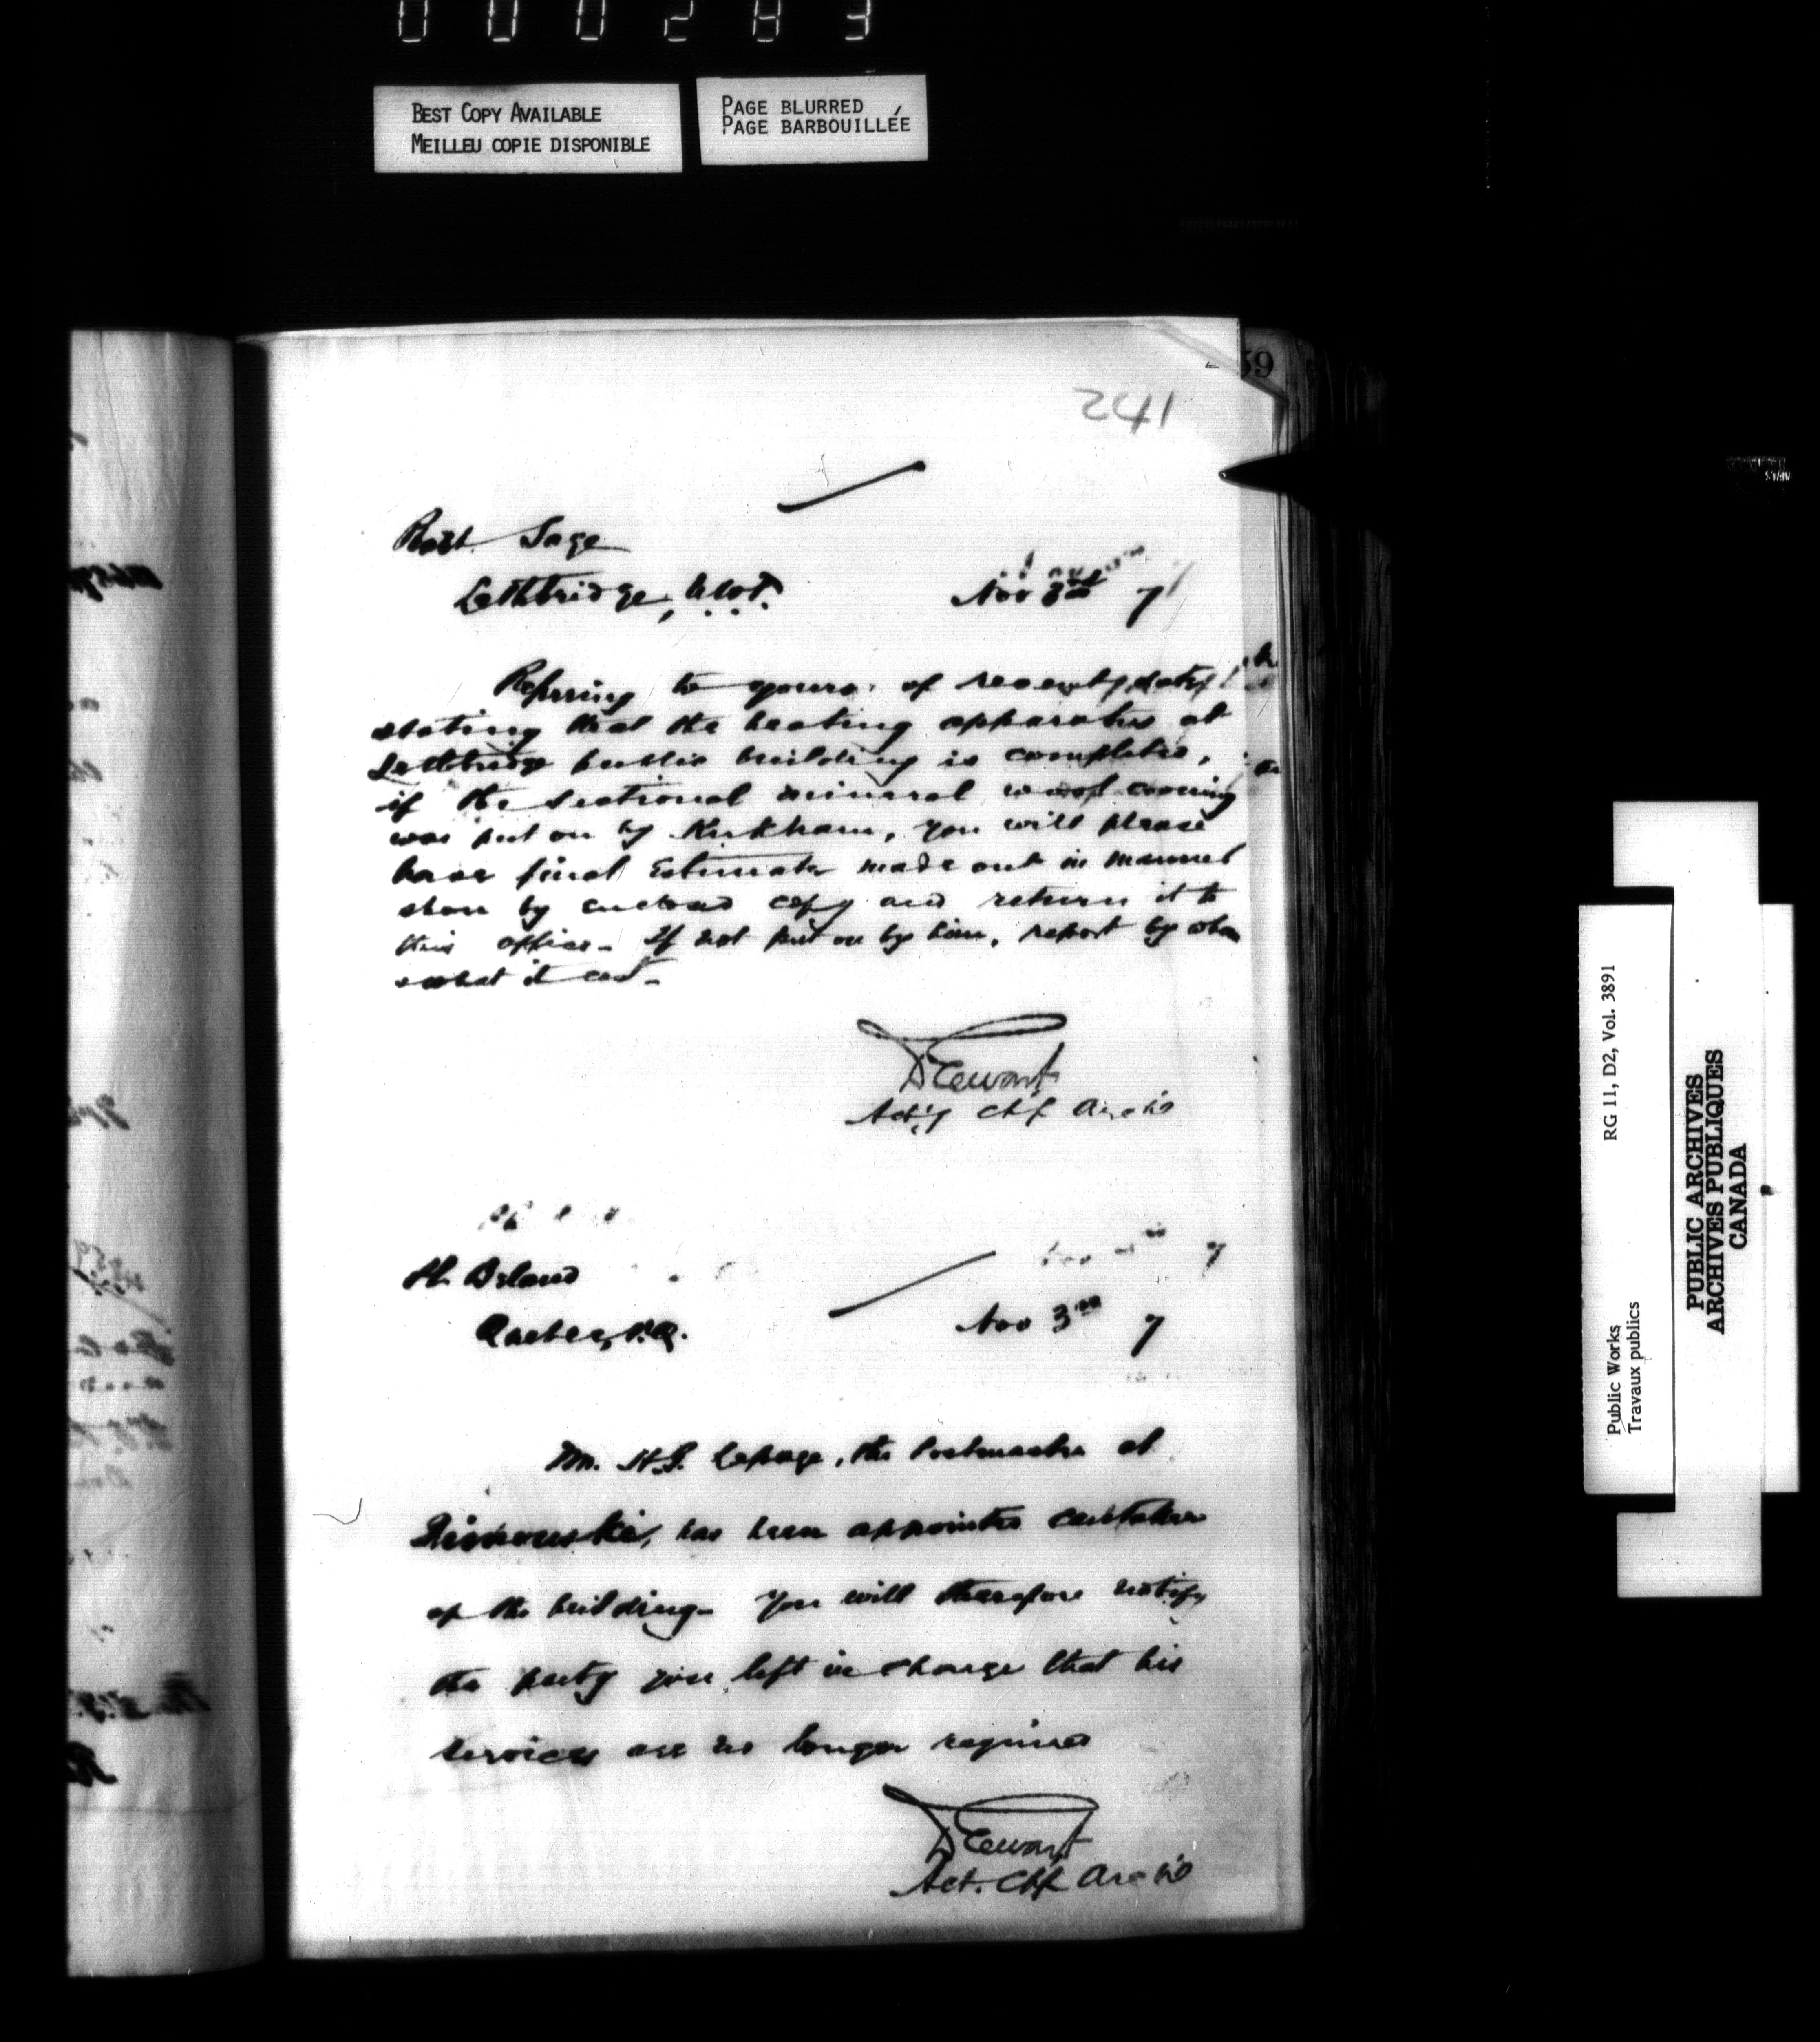 000283
BEST COPY AVAILABLE
MEILLEU COPIE DISPONIBLE
PAGE BLURRED
PAGE BARBOUILLÉE
59
241
Robt. Sage
Lethbridge, N.W.T.
Nov 3rd 7
Referring to yours of recent date,
stating that the heating apparatus at
Lethbridge public building is completed,
if the sectional mineral wool covering
was put on by Kirkham, you will please
have final Estimate made out in manner
shown by enclosed copy and return it to
this office - If not put on by him, report by whom
& what it cost -
D Ewart
Act'g Chf Archt
Ph. Béland
Quebec, P.Q.
Nov 3rd 7
Mr. H.S. Lepage, the Postmaster at
Rimouski, has been appointed caretaker
of the building - You will therefore notify
the party you left in charge that his
services are no longer required
D Ewart
Act. Chf Archt
RG 11, D2, Vol. 3891
Public Works
Travaux publics
PUBLIC ARCHIVES
ARCHIVES PUBLIQUES
CANADA